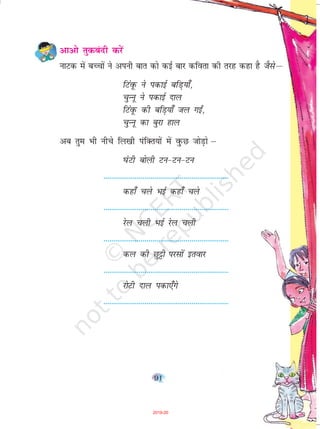 आओ तुकबंदी करें
नाटक में बच्चों ने अपनी बात को कई बार कविता की तरह कहा है जैसे–
टिंकू ने पकाई बड़ियाँ,
चुन्नू ने पकाई दाल
टिंकू की बड़ियाँ जल गईं,
चुन्नू का बुरा हाल
अब तुम भी नीचे लिखी पंक्तियों में कुछ जोड़ो –
घंटी बोली टन-टन-टन
..................................................
कहाँ चले भई कहाँ चले
..................................................
रेल चली भई रेल चली
..................................................
कल की छुट्टी परसों इतवार
..................................................
रोटी दाल पकाएँगे
..................................................
© NCERT
not to be republished
91
2019-20